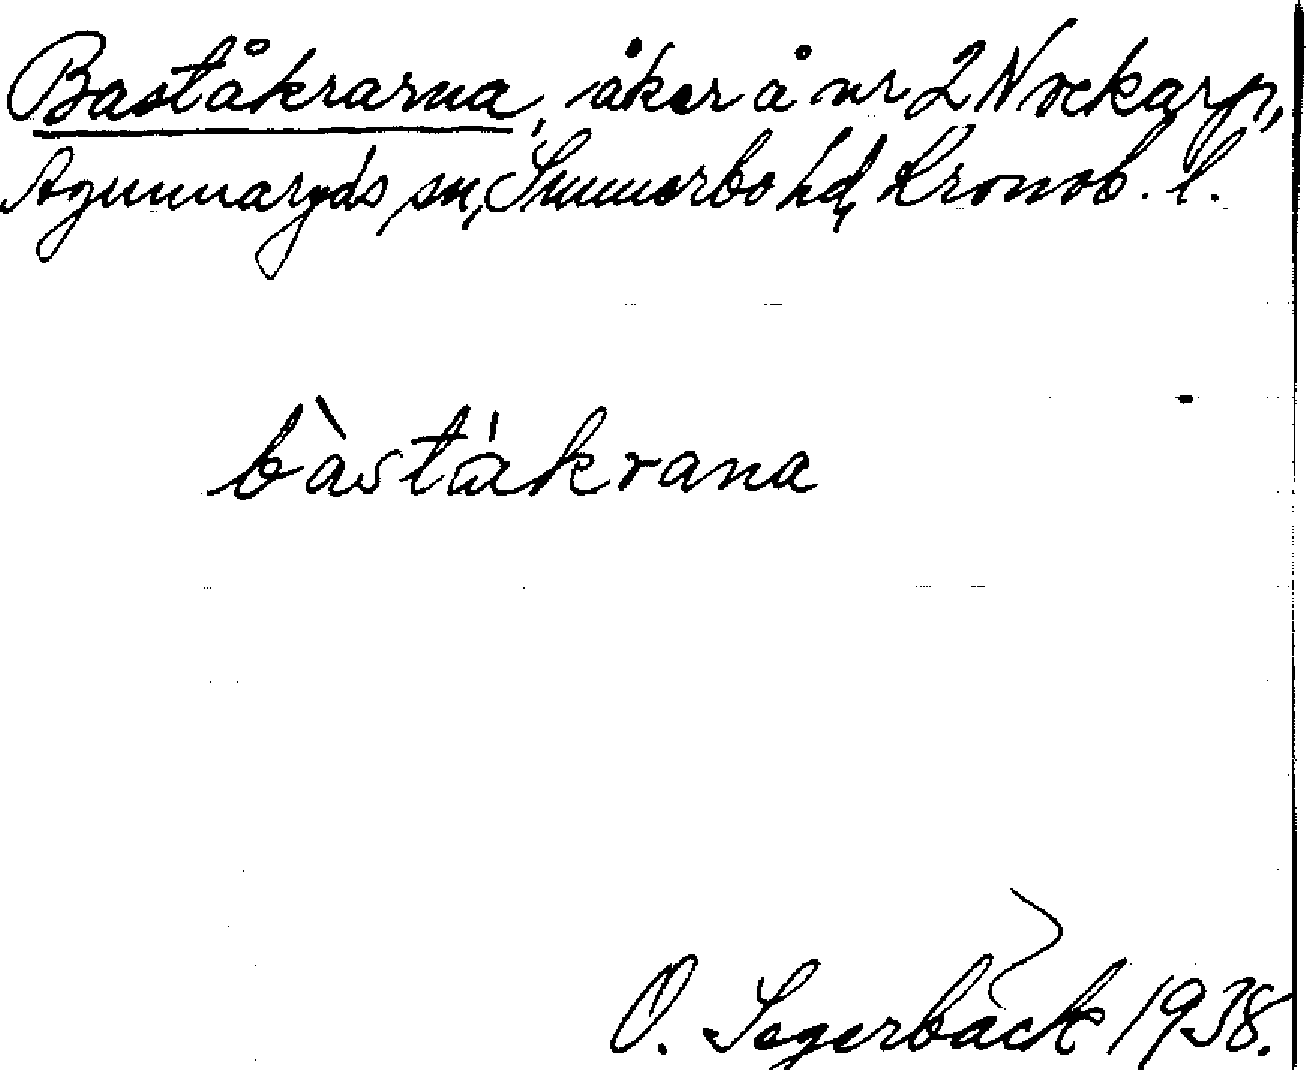 Baståkrarna, åker å nr 2 Nockarp,
Agunnaryds sn, Sunnerbo hd, Kronob. l.
bàstákrana
O. Segerbäck 1938.